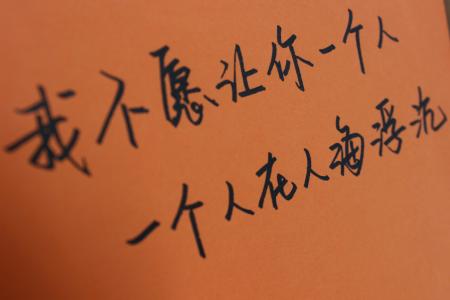 我不愿让你一个人
一个人在人海浮沉